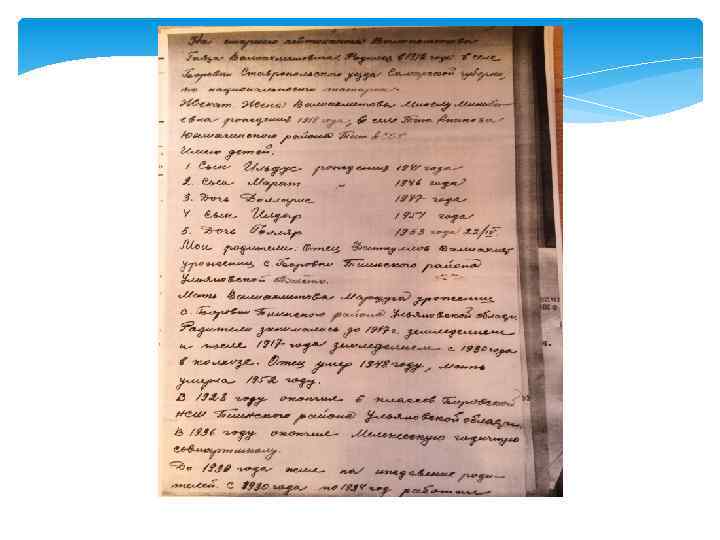 На старшего лейтенанта Валиахметова
Гаяза Валиахметовича. Родился в 1912 году в селе
Боровки Ставропольского уезда Самарской губернии,
по национальности татарин.
Женат. Жена Валиахметова
рождения 1918 года, в селе
района ССР
Имею детей.
1. Сын Ильдус рождения 1941 года
2. Сын Марат " 1946 года
3. Дочь Долларис 1947 года
4. Сын Илдар 1951 года
5. Дочь 1953 года 22/IV.
Мои родители. Отец Валиахмет
уроженец с. района
Ульяновской области.
Мать Валиахметова уроженец
с. района Ульяновской области.
Родители занимались до 1917 г. земледелием
и после 1917 года земледелием с 1930 года
в колхозе. Отец умер 1948 году, мать
умерла 1952 году.
В 1928 году окончил 6 классов
НСШ района Ульяновской области.
В 1936 году окончил Мелекесскую годичную
совпартшколу.
До 1930 года жил на иждивение роди-
телей. С 1930 года по 1934 год работал